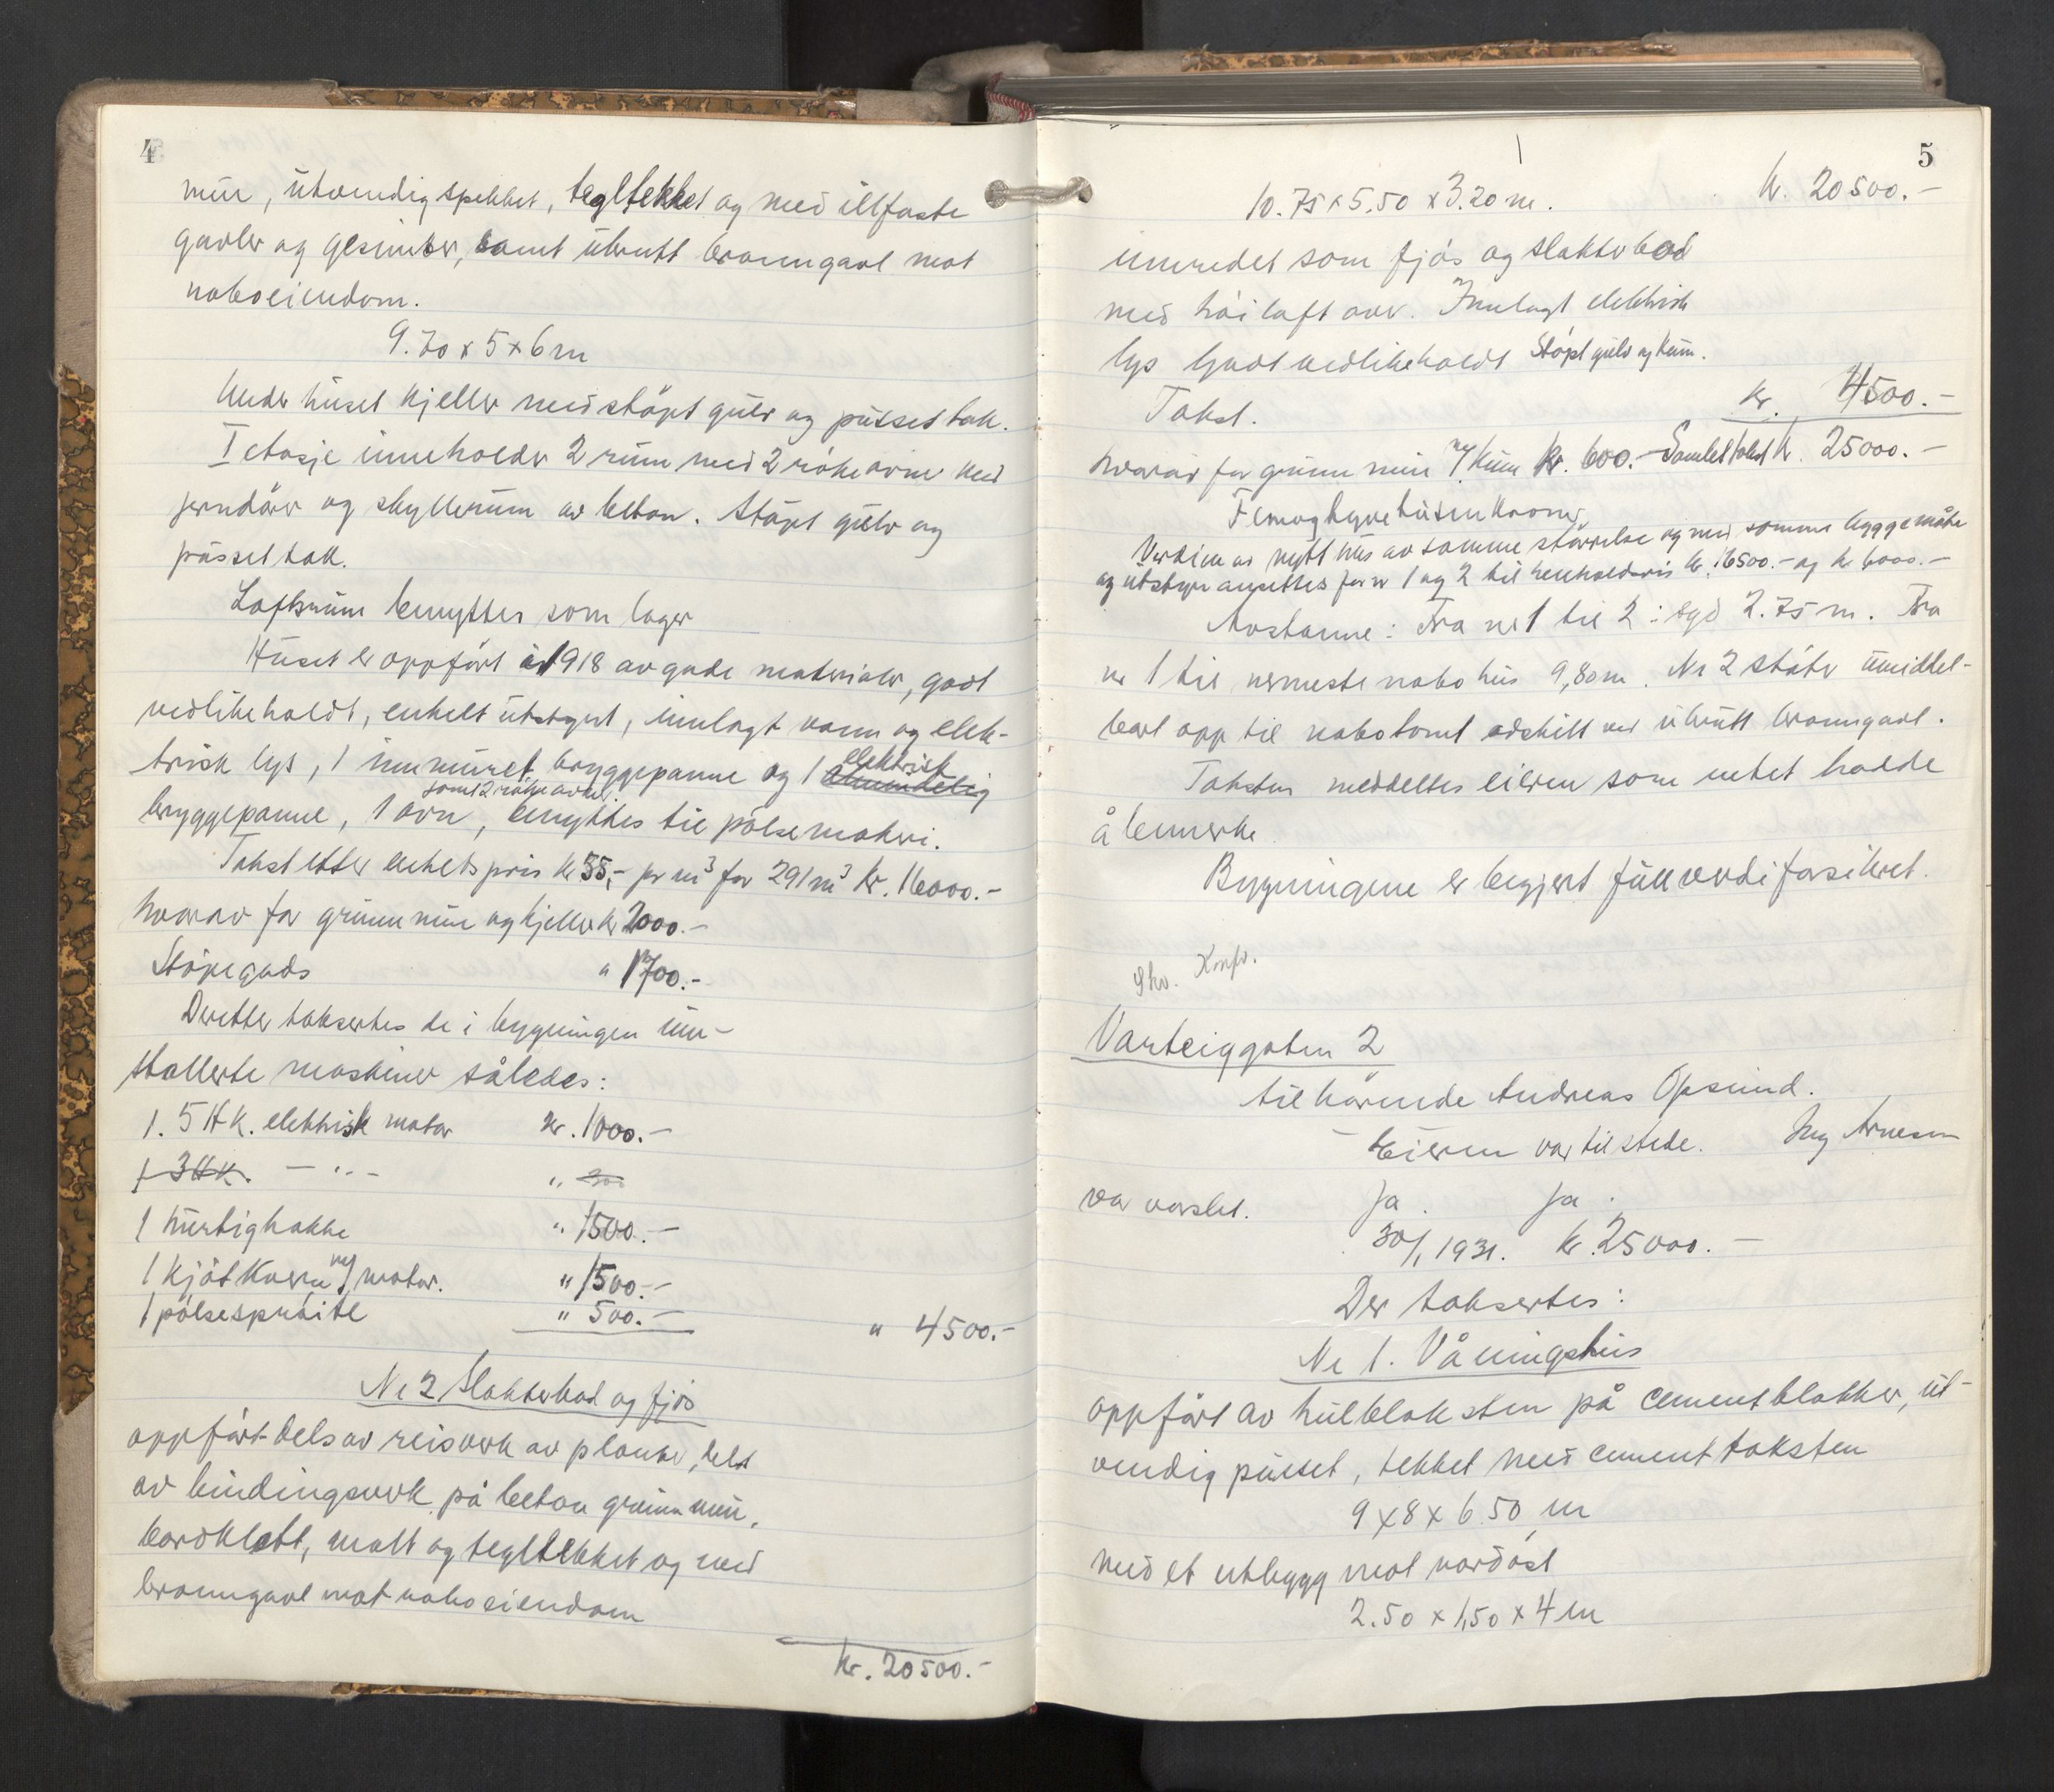 4
mur, utvendig spekket, tegltekket og med ildfaste
gavler og gesimser, samt ubrutt branngavl mot
naboeiendom.
9.70 x 5 x 6 m
Under huset kjeller med støpt gulv og pusset tak.
I etasje inneholder 2 rum med 2 røkeovner med
jerndører og skyllerum av beton. Støpt gulv og
pusset tak.
Loftsrum benyttes som lager
Huset er oppført år 1918 av gode materialer, godt
vedlikeholdt, enkelt utstyrt, innlagt vann og elek-
trisk lys, 1 innmuret bryggepanne og 1 elektrisk
bryggepanne, 1 ovn, samt 2 røkeovner, benyttes til pølsemakeri.
Takst etter enhetspris kr 55,- pr m³ for 291 m³ Kr. 16000.-
hvorav for grunnmur og kjeller kr 2000.-
Støpegods " 1700.-
Deretter taksertes de i bygningen inn-
stallerte maskiner således:
1. 5 HK. elektrisk motor kr. 1000.-
1 3 HK. - " - "
1 hurtighakke " 1500.-
1 kjøtkvern m/ motor. " 1500.-
1 pølsesprøite " 500.-
" 4500.-
Nr 2 Slakterbod og fjøs
oppført dels av reisverk av planker, dels
av bindingsverk på beton grunnmur,
bordklætt, malt og tegltekket og med
branngavl mot naboeiendom
kr. 20500.-
5
kr. 20500.-
10.75 x 5.50 x 3.20 m.
innredet som fjøs og slakterbod
med høiloft over. Innlagt elektrisk
lys Godt vedlikeholdt Støpt gulv og kum.
Takst. kr. 4500.-
hvorav for grunnmur m/ kum kr. 600.- Samlet takst kr. 25000.-
Femogtyvetusen kroner
Verdien av nytt hus av samme størrelse og med samme byggemåte
og utstyr ansettes for nr 1 og 2 til henholdsvis kr. 16500.- og kr 6000.-
Avstanne: Fra nr 1 til 2 : syd 2.75 m. Fra
nr 1 til nermeste nabohus 9,80 m. Nr 2 støter umiddel-
bart opp til nabotomt adskilt ved ubrutt branngavl.
Taksten meddeltes eieren som intet hadde
å bemerke.
Bygningene er begjert fullverdiforsikret.
Skv. Konfr.
Varteiggaten 2
tilhørende Andreas Opsund.
Eieren var tilstede. Ing Arnesen
var varslet. Ja. Ja.
30/1 1931. kr. 25000.-
Der taksertes:
Nr 1. Våningshus
oppført av hulbloksten på cementblokker, ut-
vendig pusset, tekket med cementtaksten
9 x 8 x 6.50 m
med et utbygg mot nordøst
2.50 x 1,50 x 4 m